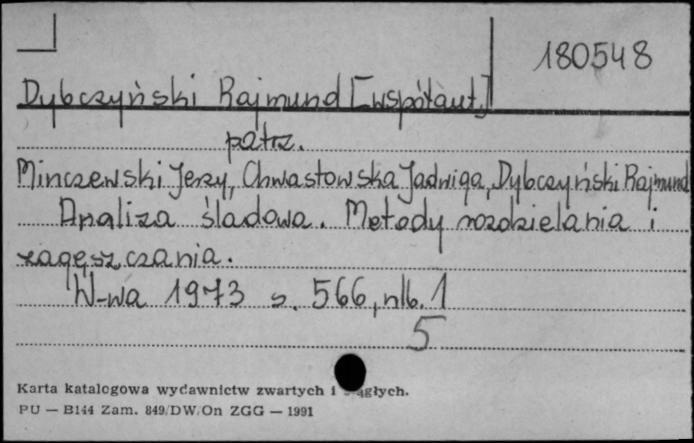 180548
Dybczyński Rajmund [współaut.]
patrz.
Minczewski Jerzy, Chwastowska Jadwiga, Dybczyński Rajmund
Analiza śladowa. Metody rozdzielania i
zagęszczania.
W-wa 1973 s. 566, nlb. 1
5
Karta katalogowa wydawnictw zwartych i
PU — B144 Zam. 849/DW/On ZGG — 1991